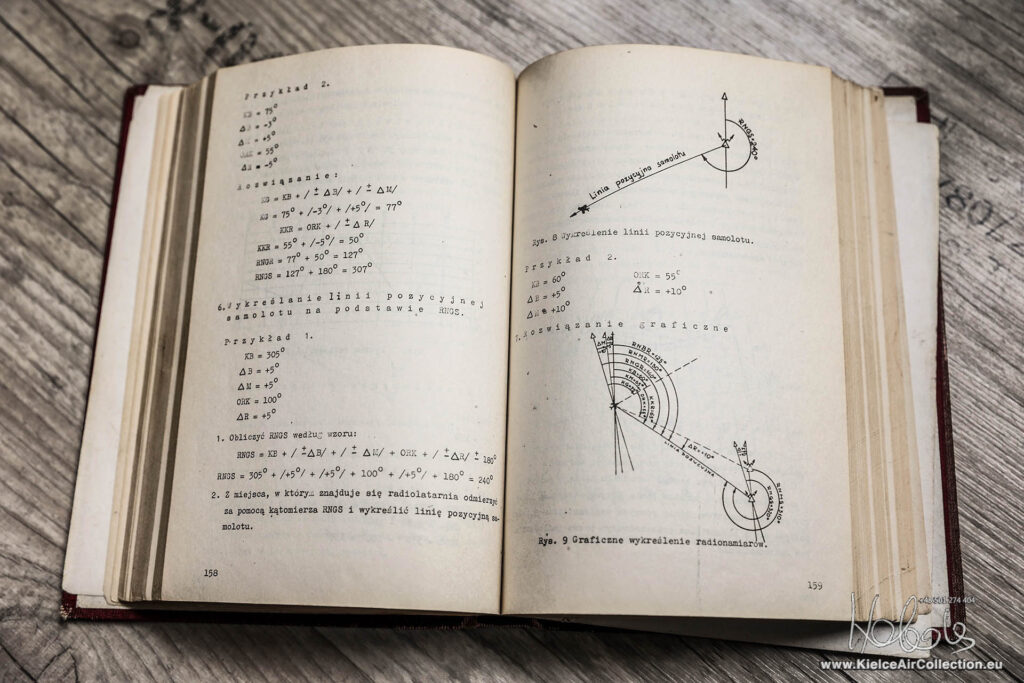 Przykład 2.
KB = 75°
ΔB = -3°
ΔM = +5°
ORK = 55°
ΔR = -5°
Rozwiązanie:
KG = KB + /± ΔB/ + /± ΔM/
KG = 75° + /-3°/ + /+5°/ = 77°
KKR = ORK + /± ΔR/
KKR = 55° + /-5°/ = 50°
RNGR = 77° + 50° = 127°
RNGS = 127° + 180° = 307°
6. Wykreślanie linii pozycyjnej
samolotu na podstawie RNGS.
Przykład 1.
KB = 305°
ΔB = +5°
ΔM = +5°
ORK = 100°
ΔR = +5°
1. Obliczyć RNGS według wzoru:
RNGS = KB + /± ΔB/ + /± ΔM/ + ORK + /± ΔR/ ± 180°
RNGS = 305° + /+5°/ + /+5°/ + 100° + /+5°/ + 180° = 240°
2. Z miejsca, w którym znajduje się radiolatarnia odmierzyć
za pomocą kątomierza RNGS i wykreślić linię pozycyjną sa-
molotu.
158
RNGS=240°
Linia pozycyjna samolotu
Rys. 8 Wykreślenie linii pozycyjnej samolotu.
Przykład 2.
KB = 60° ORK = 55°
ΔB = +5° ΔR = +10°
ΔM = +10°
7. Rozwiązanie graficzne
ΔR=+10°
LINIA POZYCYJNA
Rys. 9 Graficzne wykreślenie radionamiarów.
159
www.KielceAirCollection.eu